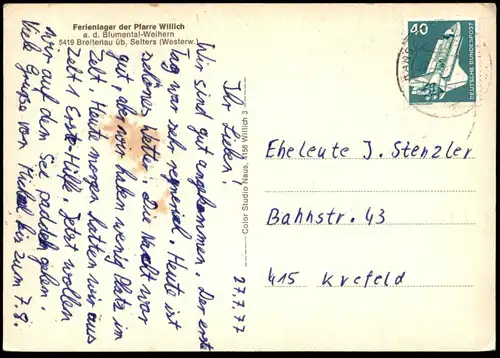 Ferienlager der Pfarre Willich
a. d. Blumental-Weihern
5419 Breitenau üb. Selters (Westerw.
Ihr Lieben!
Wir sind gut angekommen. Der erste
Tag war sehr regnerisch. Heute ist
schönes Wetter. Die Nacht war
gut, aber wir haben wenig Platz im
Zelt. Heute morgen hatten wir aus
Zelt 1 Erste-Hilfe. Jetzt wollen
wir auf den See paddeln gehen.
Viele Grüsse von Michael bis zum 7.8.
27.7.77
Color Studio Naus, 4156 Willich 3
40
DEUTSCHE BUNDESPOST
Eheleute J. Stenzler
Bahnstr. 43
415 Krefeld